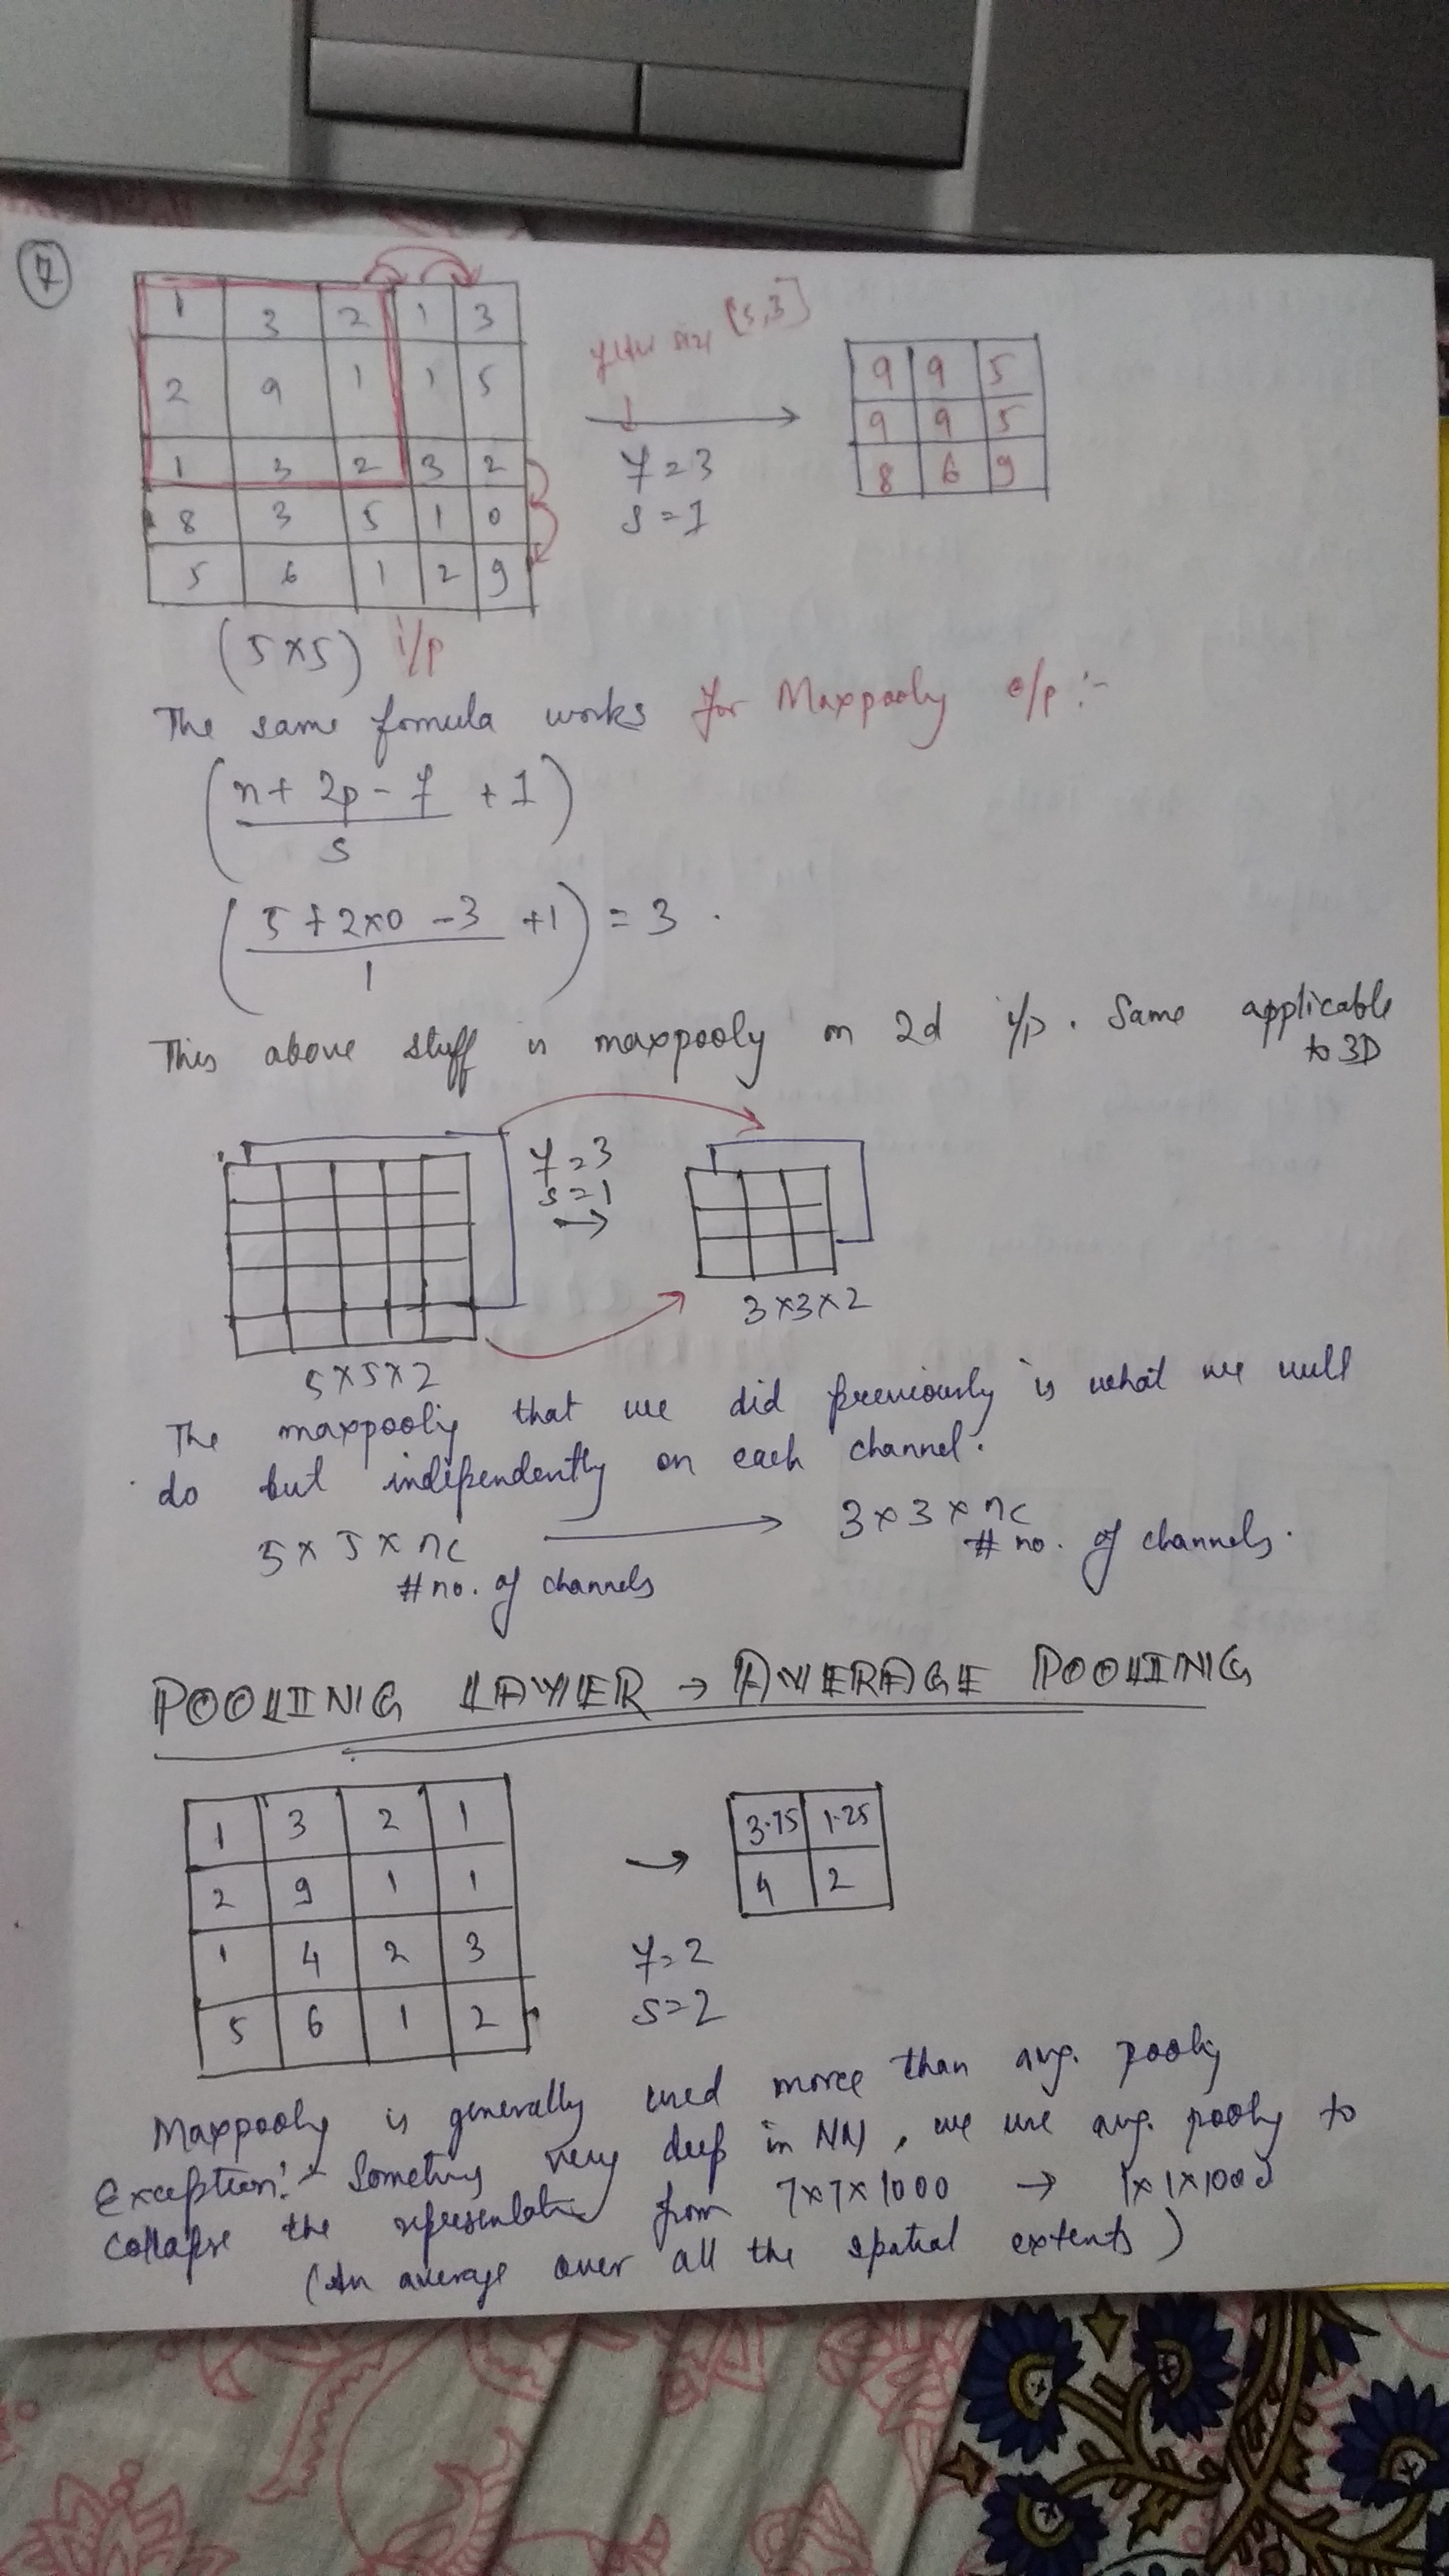 7
1 3 2 1 3
2 9 1 1 5
1 3 2 3 2
8 3 5 1 0
5 6 1 2 9
filter size
f=3
s=1
9 9 5
9 9 5
8 6 9
(5×5) i/p
The same fomula works for Maxpooly o/p :-
(n+2p-f/s +1)
(5+2×0-3/1 +1) = 3.
This above stuff is maxpooly on 2d i/p. Same applicable
to 3D
f=3
s=1
5×5×2
3×3×2
The maxpooliy that we did previously is what we will
do but independently on each channel.
5×5×nc → 3×3×nc
# no. of channels
# no. of channels.
POOLING LAYER → AVERAGE POOLING
1 3 2 1
2 9 1 1
1 4 2 3
5 6 1 2
→
3.75 1.25
4 2
f=2
s=2
Maxpooly is generally used more than avg. pooly
Exception:- Somethig very deep in NN, we use avg. pooly to
collapse the representatio from 7×7×1000 → 1×1×1000
(An average over all the spatial extents)